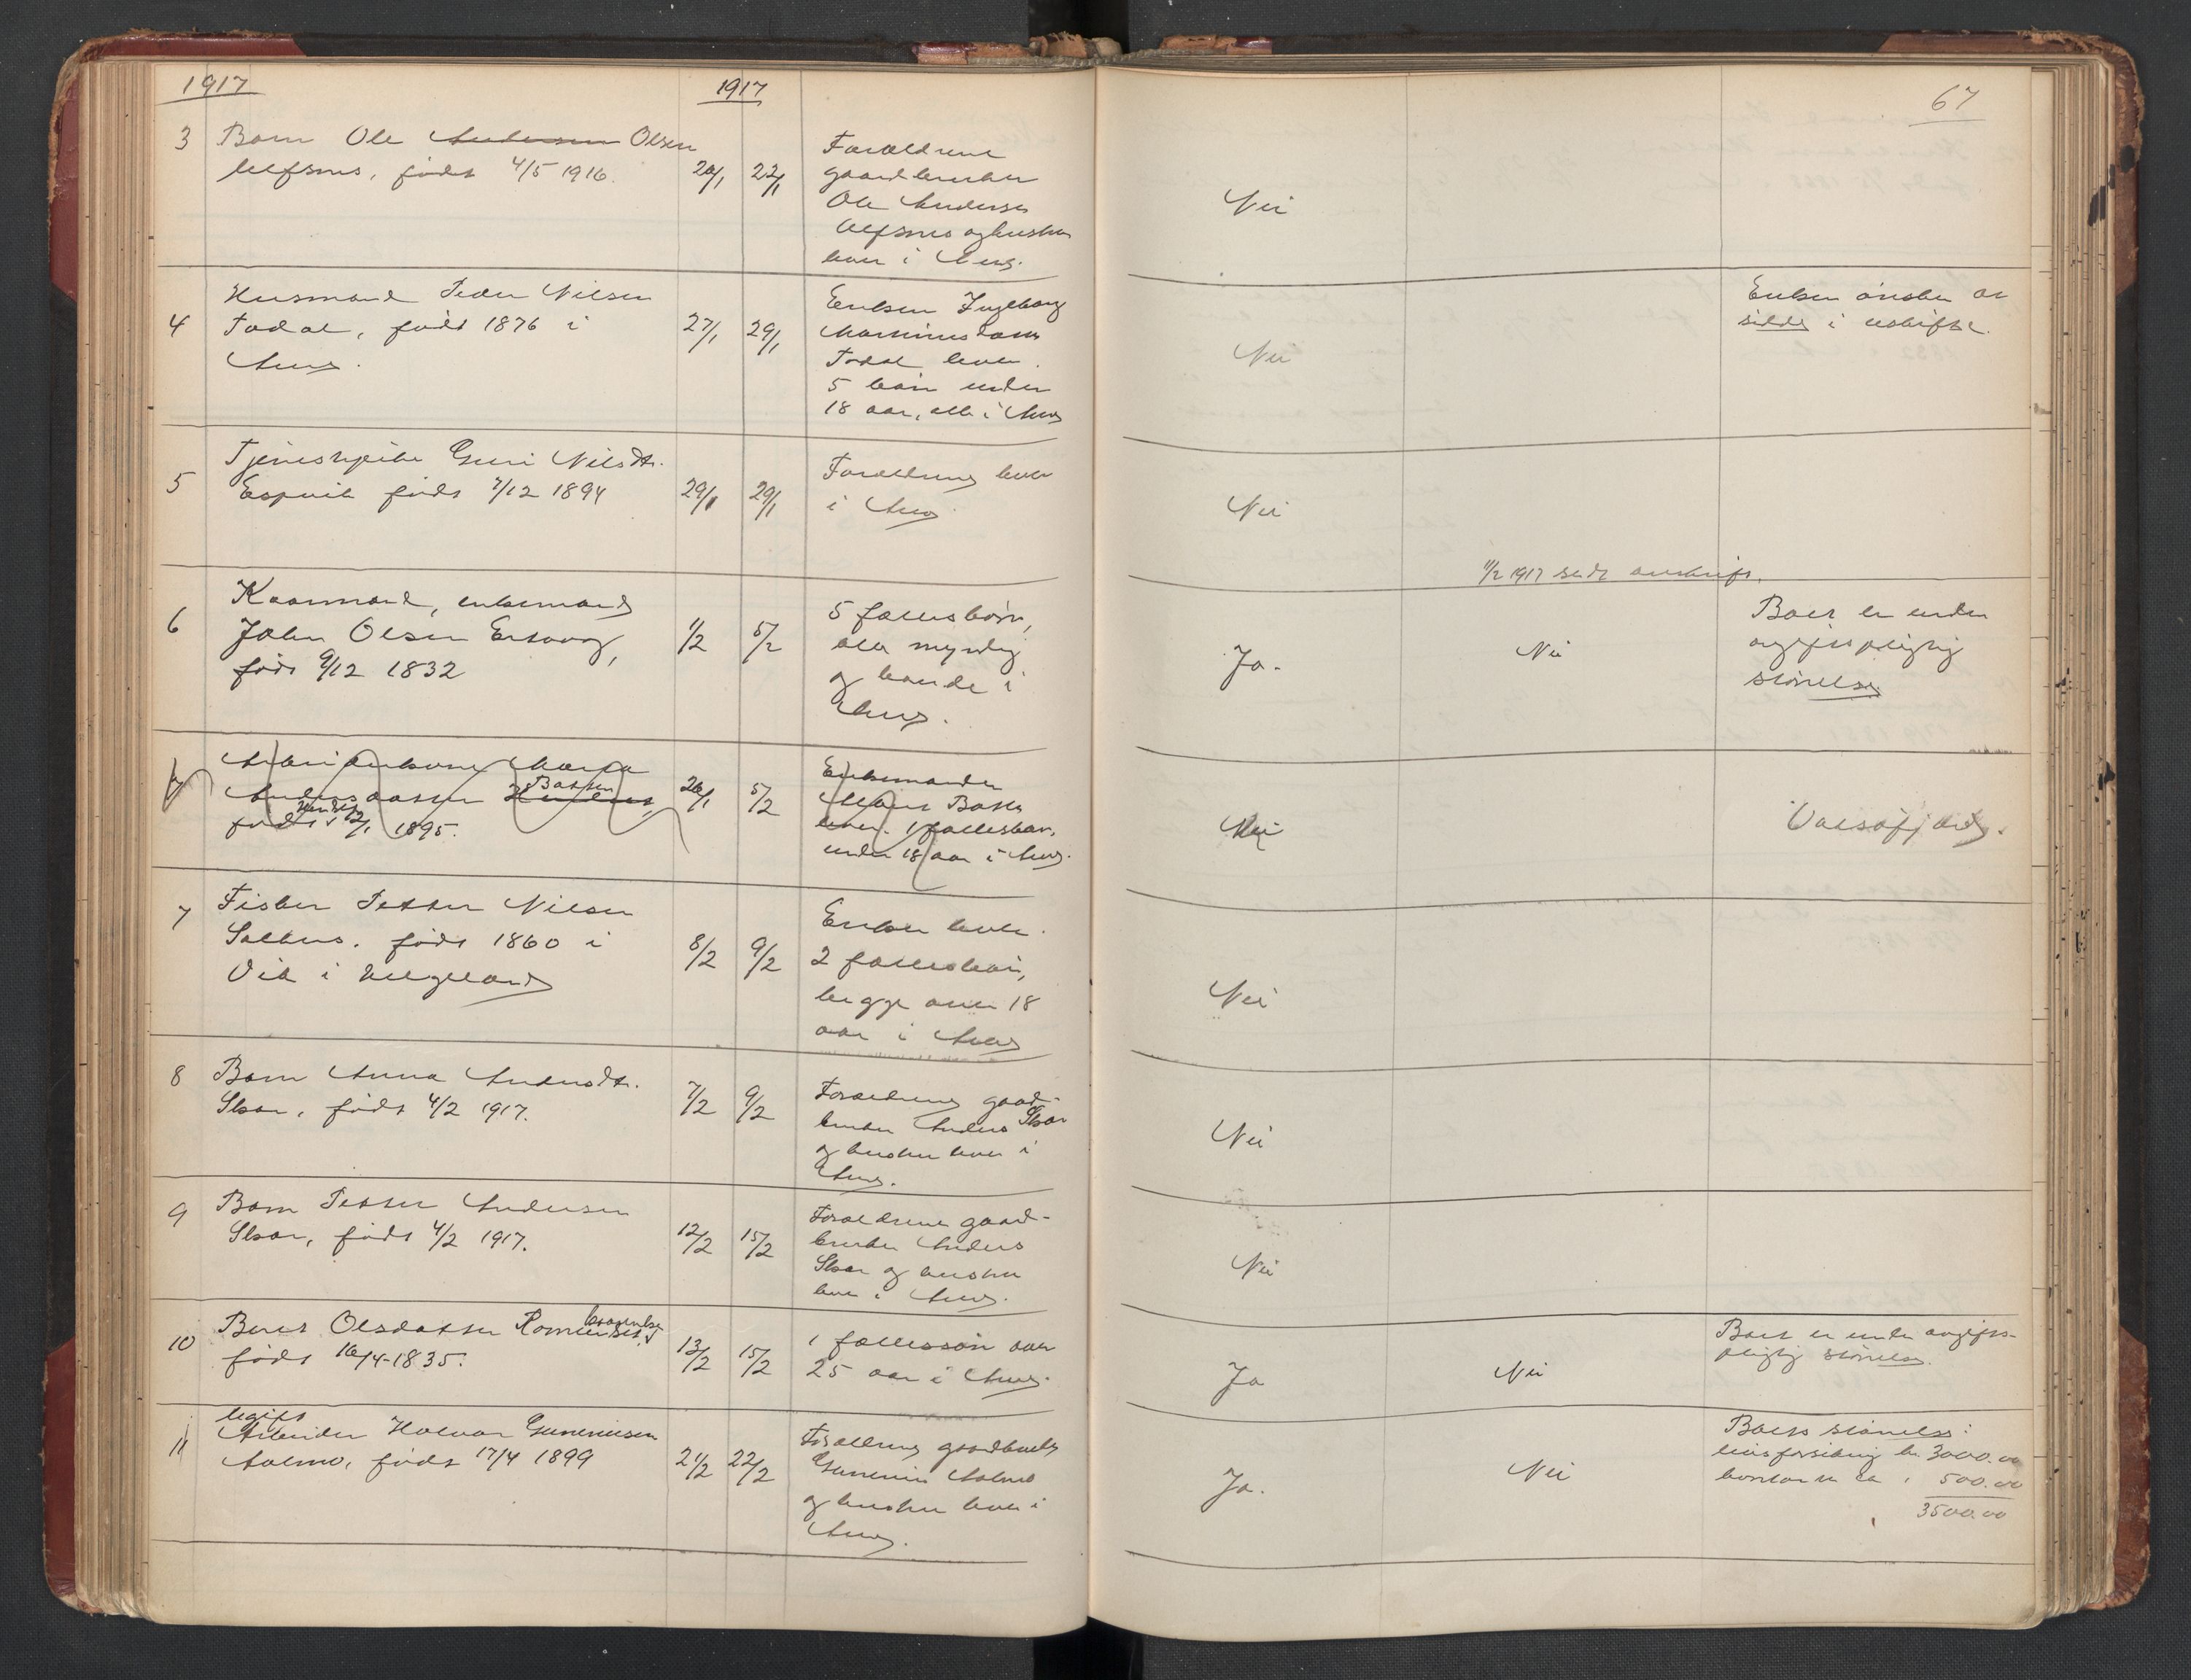 1917
1917
67
3
Barn Ole Andersen Olsen
Ulfsnes, født 4/5 1916.
20/1
22/1
Forældrene
gaardbruker
Ole Andersen
Ulfsnes og hustru
lever i Aure.
Nei
4
Husmand Peder Nilsen
Todal, født 1876 i
Aure.
27/1
29/1
Enken Ingeborg
Todal lever.
5 barn under
18 aar, alle i Aure
Nei
Enken ønsker at
sidde i uskifte.
5
Tjenestpike Guri Nilsdtr.
Espvik født 7/12 1894
29/1
29/1
Forældrene lever
i Aure
Nei
1/2 1917 sendt avskrift.
6
Kaarmand, enkemand
John Olsen
født 9/12 1832
1/2
5/2
5 fællesbørn,
alle myndig
og boende i
Aure.
Ja.
Nei
Boet er under
avgiftspligtig
størrelse
7
Marta
Andersdatter Batten
født i 12/1 1895.
26/1
5/2
Enkemanden
lever. 1 fællesbarn
under 18 aar i Aure.
Nei
Valsøfjord.
7
Fisker Petter Nilsen
født 1860 i
Vik i Helgeland
8/2
9/2
Enken lever.
2 fællesbarn,
begge over 18
aar i Aure
Nei
8
Barn Anna Andersdtr.
Skar, født 4/2 1917.
7/2
9/2
Forældrene gaard-
bruker Anders Skar
og hustru lever i
Aure.
Nei
9
Barn Petter Andersen
Skar, født 4/2 1917.
12/2
15/2
Forældrene gaard-
bruker Anders
Skar og hustru
lever i Aure.
Nei
10
Beret Olsdatter Romundset,
født 16/4-1835.
13/2
15/2
1 fællessøn over
25 aar i Aure.
Ja
Nei
Boet er under avgifts-
pligtig størrelse.
11
ugift
Arbeider Halvor Gunneriusen
Aalmo, født 17/4 1899
21/2
22/2
Forældrene gaardbruker
Gunnerius Aalmo
og hustru lever i
Aure.
Ja.
Nei
Boets størrelse:
livsforsikring kr 3000.00
kontanter ca " 500.00
3500.00